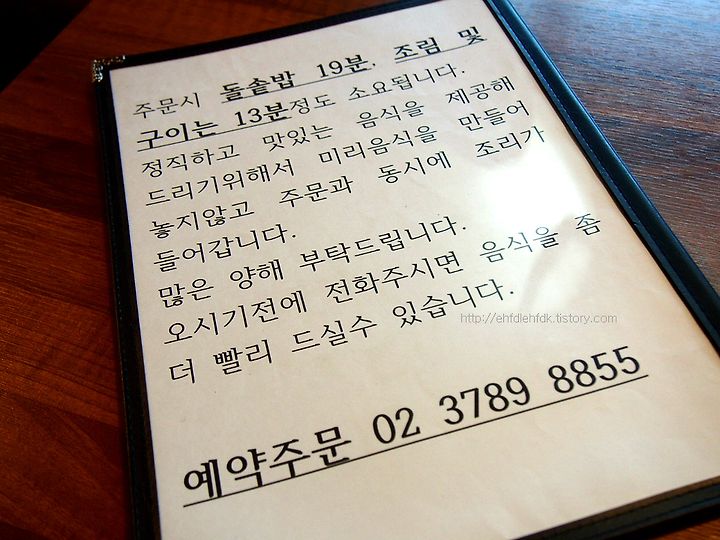 주문시 돌솥밥 19분, 조림 및
구이는 13분정도 소요됩니다.
정직하고 맛있는 음식을 제공해
드리기위해서 미리음식을 만들어
놓지않고 주문과 동시에 조리가
들어갑니다.
많은 양해 부탁드립니다.
오시기전에 전화주시면 음식을 좀
더 빨리 드실수 있습니다.
http://ehfdlehfdk.tistory.com
예약주문 02 3789 8855